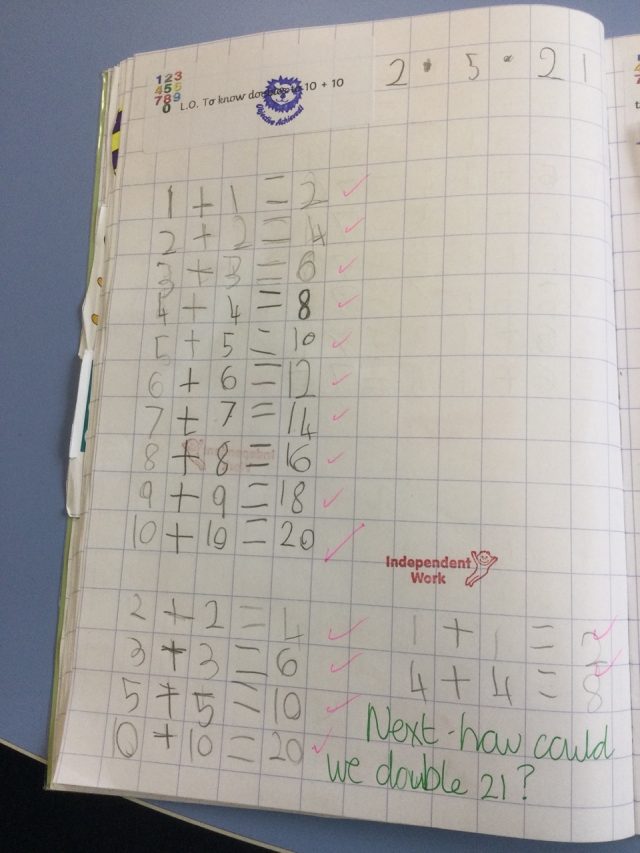 1 2 3
4 5 6
7 8 9
0
L.O. To know doubles to 10 + 10
Objective Achieved!
2 . 5 . 21
1 + 1 = 2
2 + 2 = 4
3 + 3 = 6
4 + 4 = 8
5 + 5 = 10
6 + 6 = 12
7 + 7 = 14
8 + 8 = 16
9 + 9 = 18
10 + 10 = 20
Independent
Work
2 + 2 = 4
3 + 3 = 6
5 + 5 = 10
10 + 10 = 20
1 + 1 = 2
4 + 4 = 8
Next - how could
we double 21?